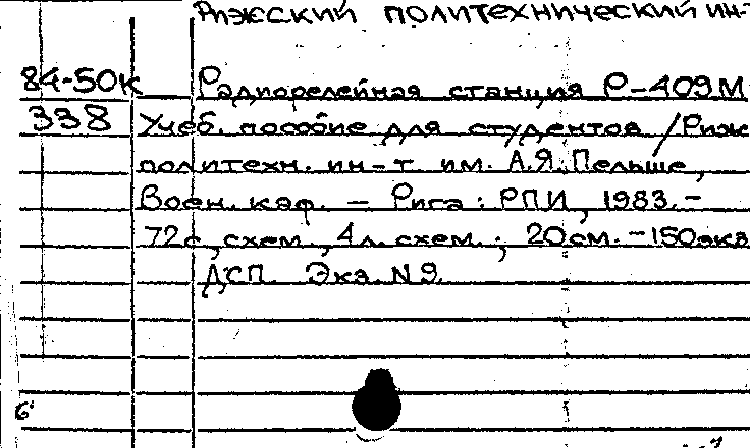 Рижский политехнический ин-
84-50к Радиорелейная станция Р-409М
338 Учеб. пособие для студентов /Риж
политехн. ин-т им. А.Я. Пельше,
Воен. каф. - Рига: РПИ, 1983.-
72с, схем., 4л. схем.; 20см. -150экз
ДСП. Экз. N9.
6